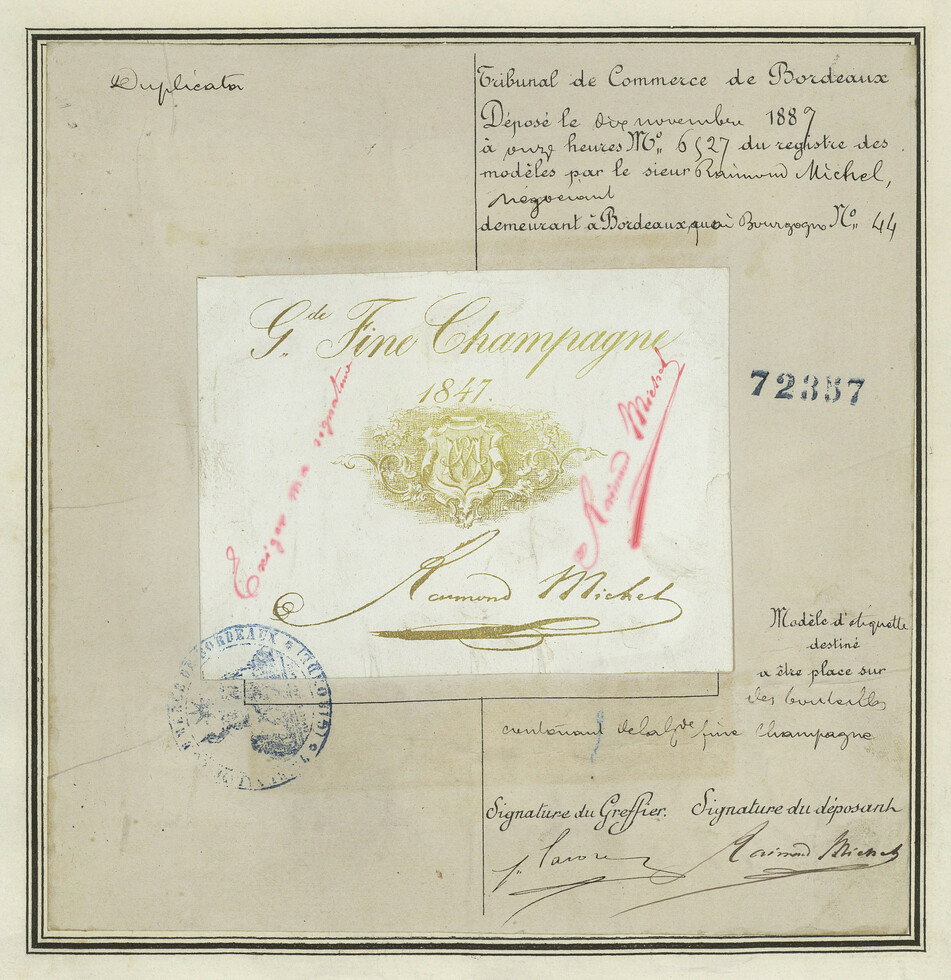 Duplicata
Tribunal de Commerce de Bordeaux
Déposé le dix novembre 1887
à onze heures No 6527 du registre des
modèles par le sieur Raimond Michel,
négociant
demeurant à Bordeaux, quai Bourgogne No 44
Gde Fine Champagne
1847.
Exiger ma signature
Raimond Michel
Raimond Michel
72357
BORDEAUX
Modèle d'étiquette
destiné
a être place sur
des bouteilles
contenant de la gde fine champagne
Signature du Greffier. Signature du déposant
Raimond Michel